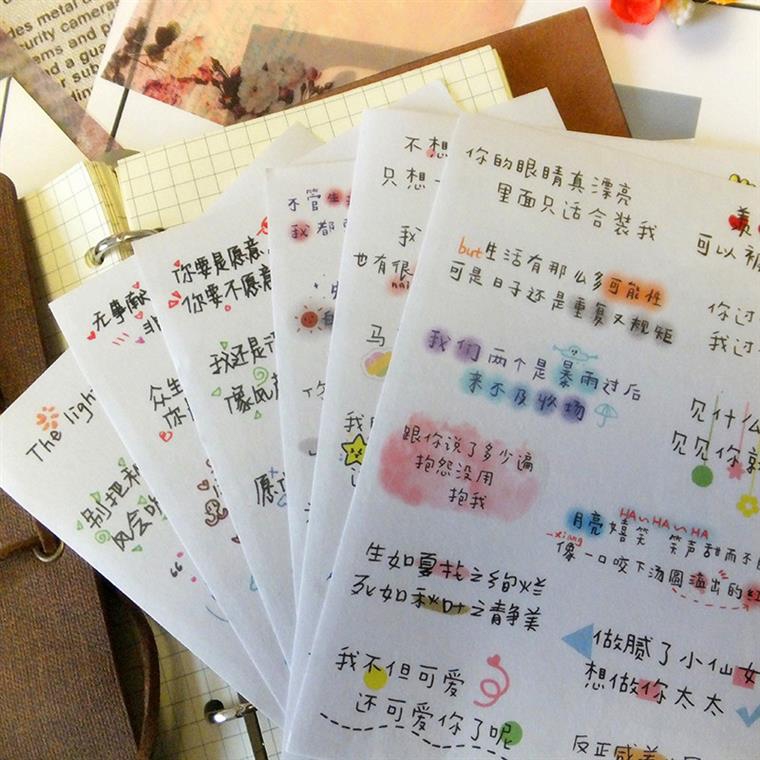 你的眼睛真漂亮
里面只适合装我
but生活有那么多可能性
可是日子还是重复又规矩
我们两个是暴雨过后
来不及收场
跟你说了多少遍
抱怨没用
抱我
生如夏花之绚烂
死如秋叶之静美
我不但可爱
还可爱你了呢
可以被
你过
我过
见什么
见见你就
HA~HA~HA
月亮嬉笑 笑声甜而不
xiang
像一口咬下汤圆溢出的红
做腻了小仙女
想做你太太
反正
不想
只想一
我
也有很
nai
马
我
不管生
我都
你
你要是愿意
你要不愿意
我还是
像风
愿
无事献
非
众生
你
The light
别把
风会
des metal
curity camera
ems and p
d a gua
r sub
din